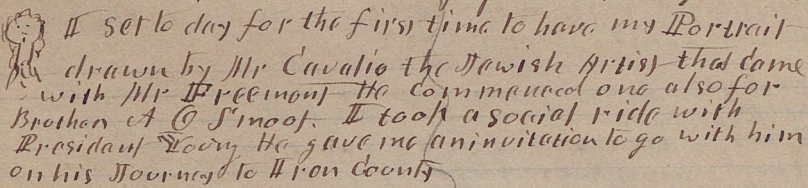 I set to day for the first time to have my Portrait
drawn by Mr Cavalio the Jewish Artist that came
with Mr Freemont He commenced one also for
Brother A O Smoot. I took a social ride with
President Young He gave me an invitation to go with him
on his Journey to Iron County